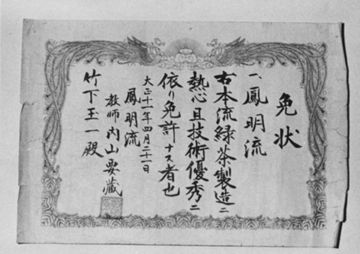 免状
一、鳳明流
右本流緑茶製造ニ
熱心且技術優秀ニ
依リ免許ナス者也
大正十一年四月二十一日
鳳明流
教師内山要蔵
竹下玉一殿